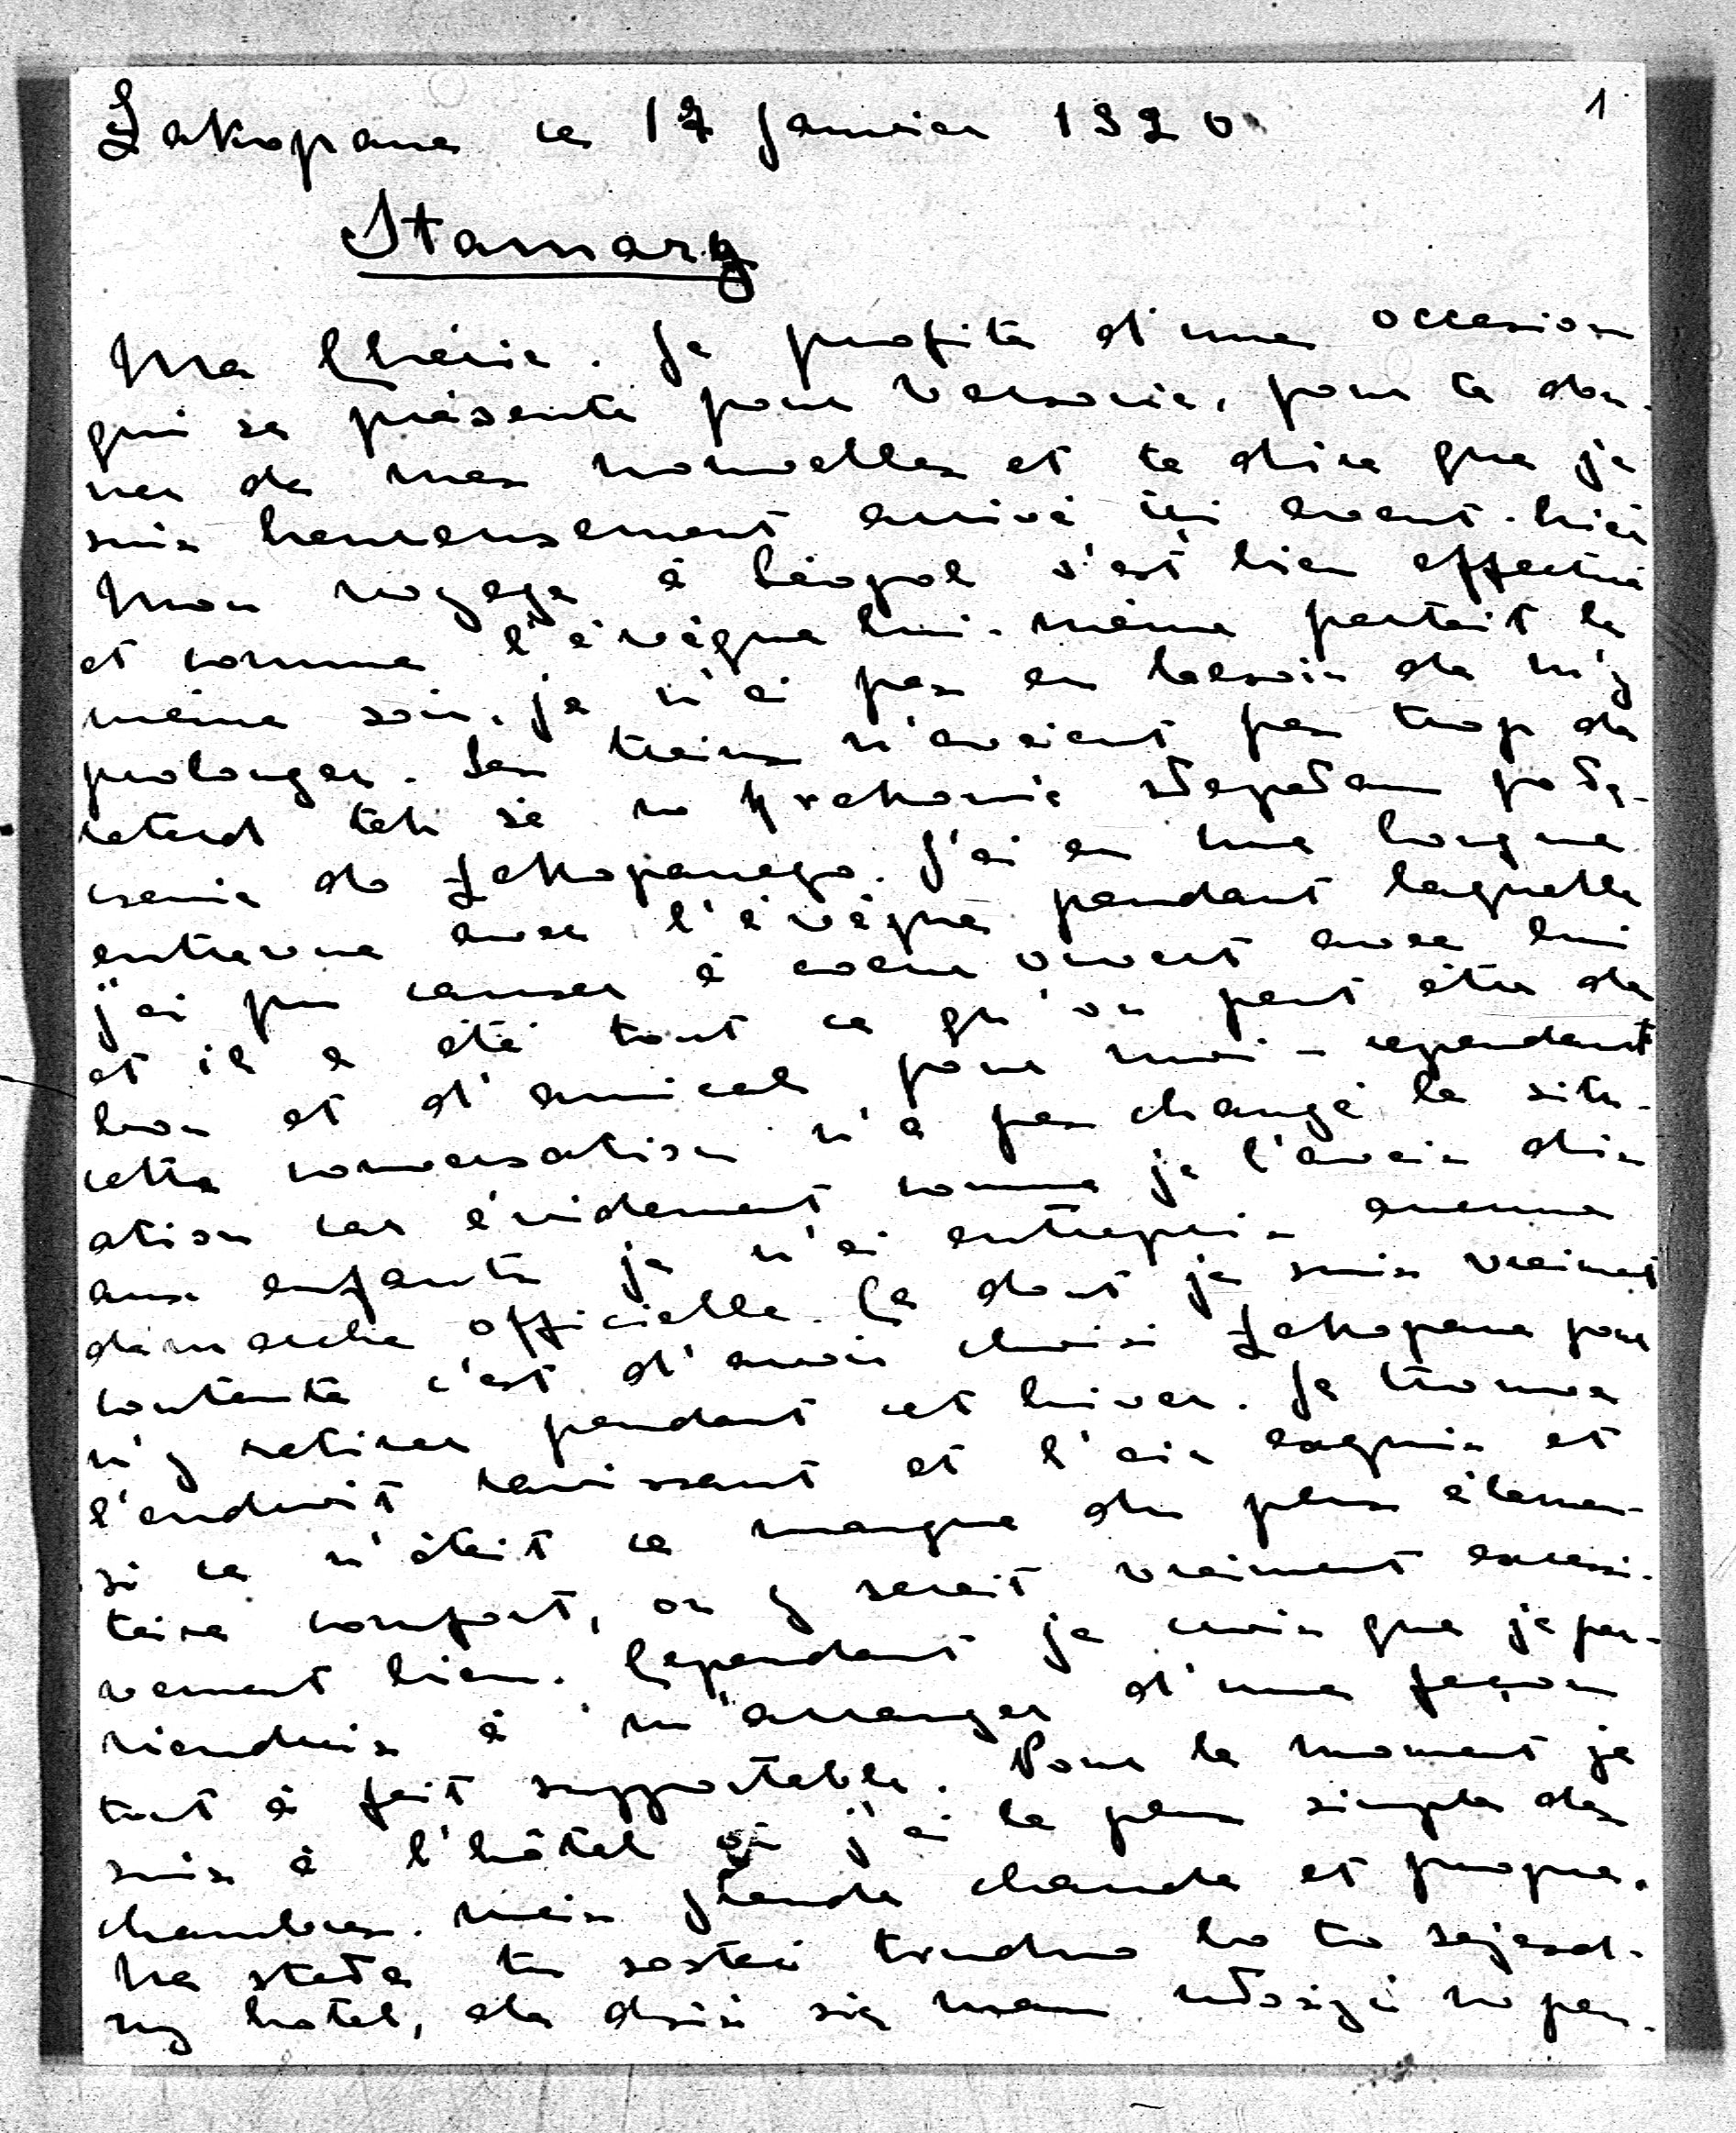 1
Zakopane ce 17 Janvier 1920
Stamary
Ma Chérie. Je profite d'une occasion
qui se présente pour Varsovie, pour te don-
ner de mes nouvelles et te dire que je
suis heureusement arrivé ici avant-hier
Mon voyage à Léopol s'est bien effectué
et comme l'évêque lui-même partait le
même soir, je n'ai pas eu besoin de m'y
prolonger. Les trains n'avaient pas trop de
retard tak że w Krakowie złapałam podą-
czenie do Zakopanego. J'ai eu une longue
entrevue avec l'évêque pendant laquelle
j'ai pu causer à cœur ouvert avec lui
et il a été tout ce qu'on peut être de
bon et d'amical pour moi - cependant
cette conversation n'a pas changé la situ-
ation car évidement comme je l'avais dis
aux enfants je n'ai entrepris aucune
démarche officielle. Ce dont je suis vraiment
contente c'est d'avoir choisi Zakopane pour
m'y retirer pendant cet hiver. Je trouve
l'endroit ravissant et l'air exquis et
si ce n'était ce manque du plus élémen-
taire confort, on y serait vraiment excessi-
vement bien. Cependant je crois que je par-
viendrais à m'arranger d'une façon
tout à fait supportable. Pour le moment je
suis à l'hôtel où j'ai la plus simple des
chambres. Mais grande chaude et propre.
Na stałe tu zostać trudno bo to zajezd-
ny hotel, ale dziś się mam włożyć w pen-